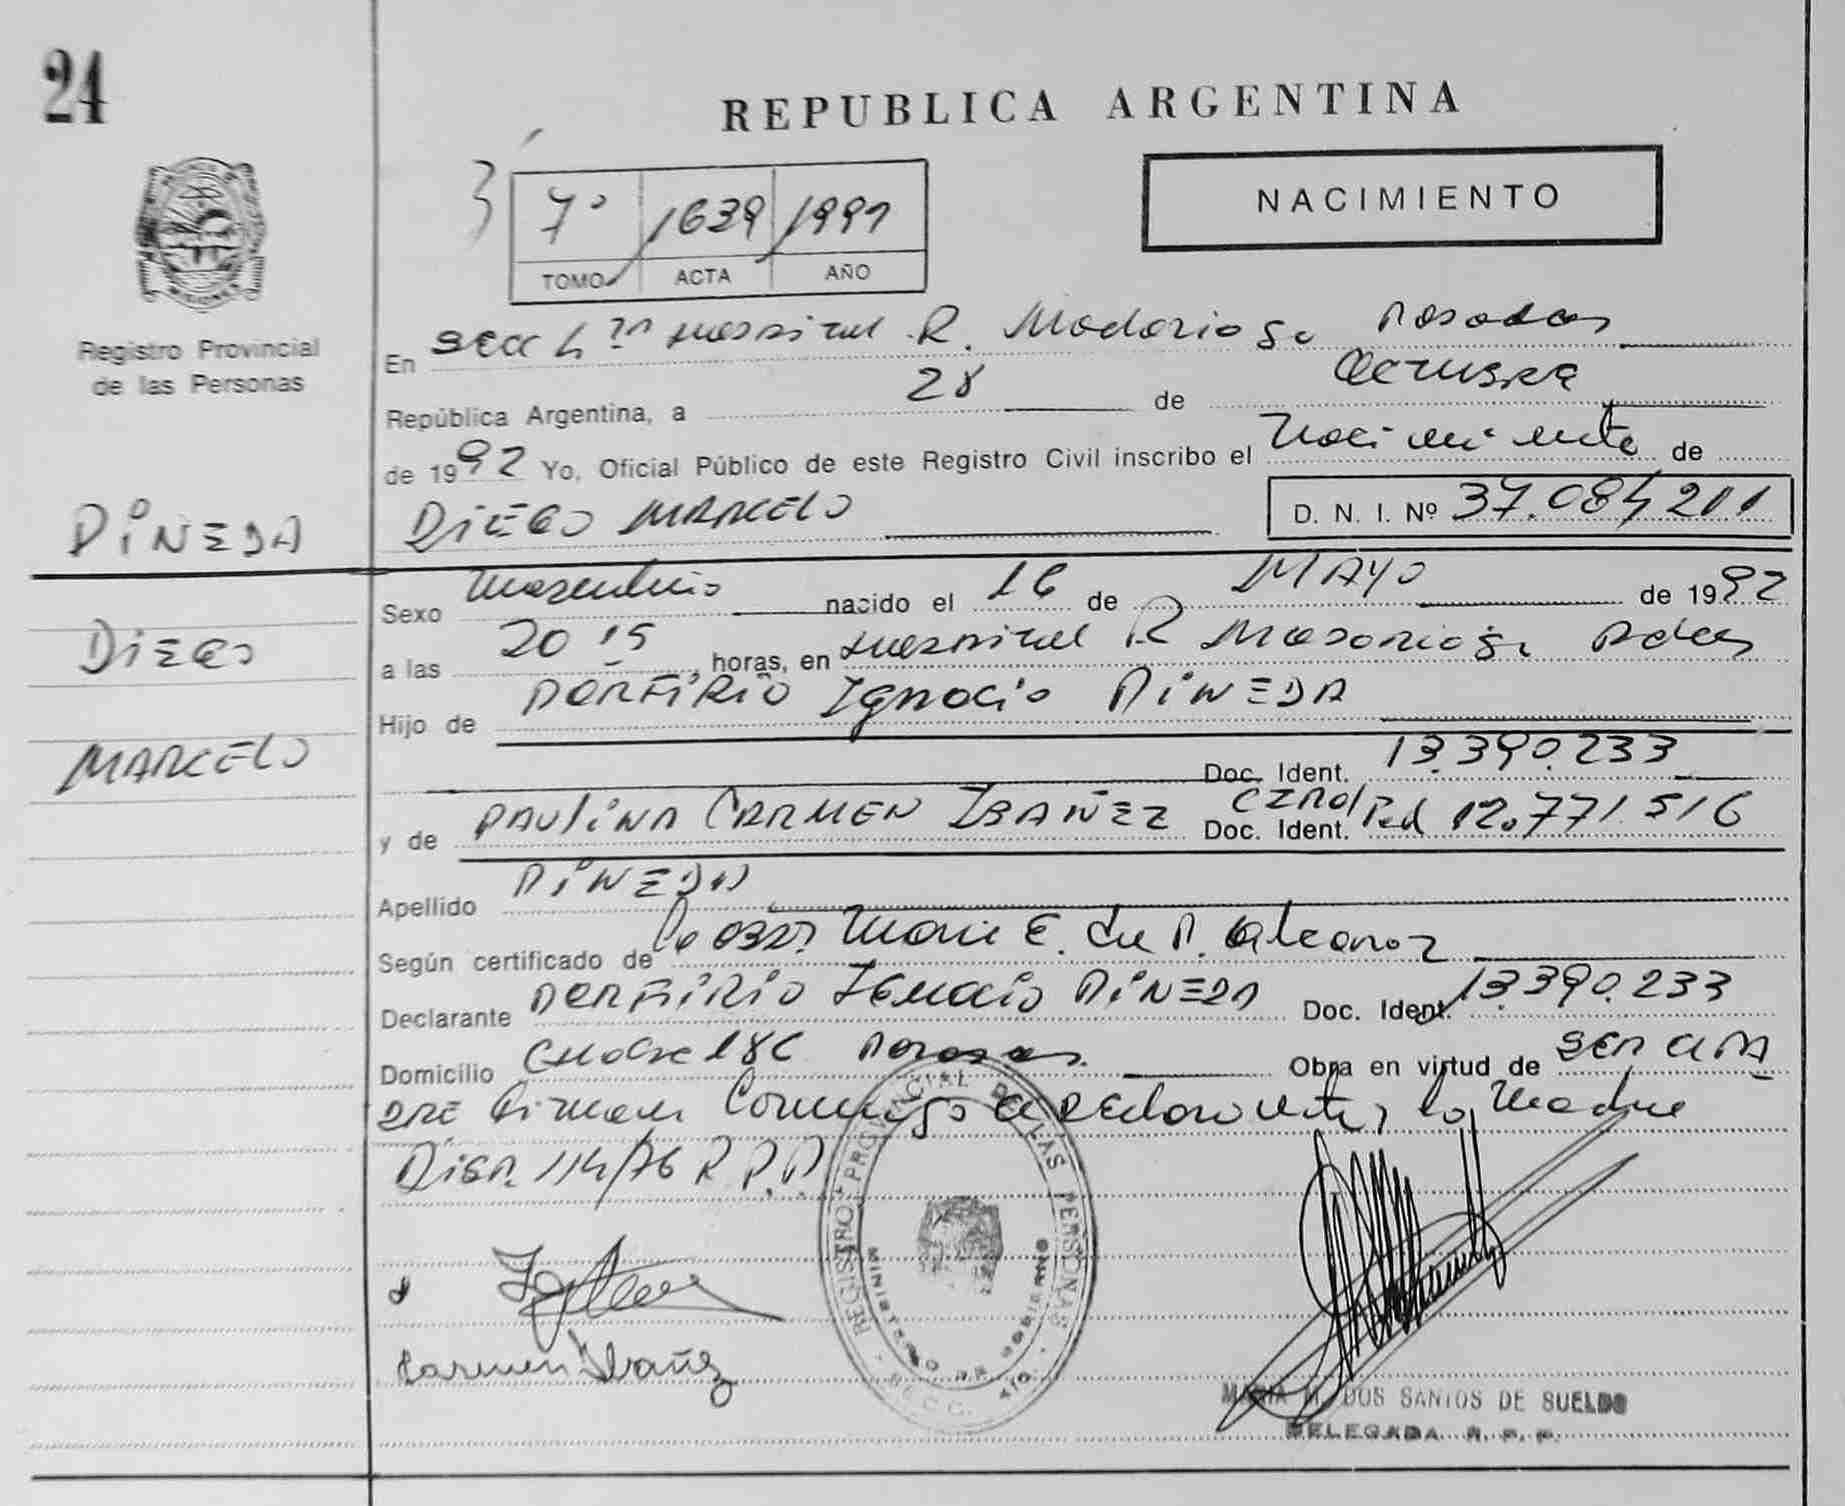 24
REPUBLICA ARGENTINA
NACIMIENTO
7º 1639 1991
TOMO ACTA AÑO
Registro Provincial
de las Personas
En Secc 4ta Hospital R. Madariaga Posadas
República Argentina, a 28 de Octubre
de 1992 Yo, Oficial Público de este Registro Civil inscribo el Nacimiento de
PINEDA
DIEGO MARCELO D. N. I. Nº 37.084211
Sexo Masculino nacido el 16 de MAYO de 1992
DIEGO
a las 20 15 horas, en Hospital R Madariaga Pdas
Hijo de PORFIRIO Ignacio PINEDA
MARCELO
Doc. Ident. 13.390.233
y de PAULINA CARMEN IBAÑEZ Doc. Ident. 12.771.516
Apellido PINEDA
Según certificado de Maria E. de P.
Declarante PORFIRIO Ignacio PINEDA Doc. Ident. 13.390.233
Domicilio 186 Posadas Obra en virtud de ser el PA
DRE Firman Conmigo el Declarante y la Madre
Disp. 114/76 R.P.P
REGISTRO PROVINCIAL DE LAS PERSONAS
MINISTERIO DE GOBIERNO
Carmen Ibañez
MARIA M. DOS SANTOS DE SUELDO
DELEGADA R. P. P.